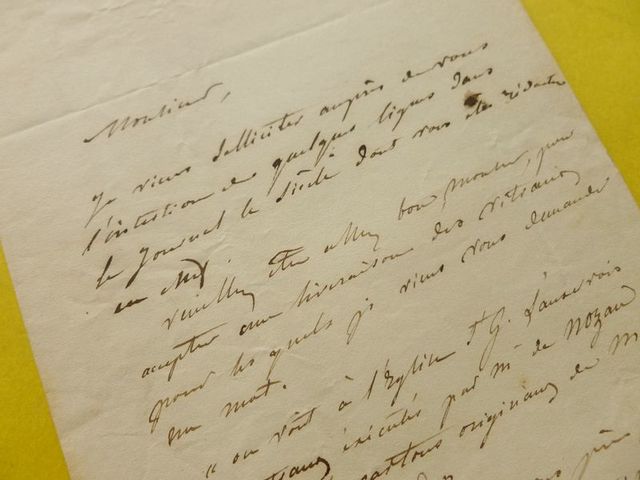 Monsieur,
Je viens solliciter auprès de vous
l'insertion de quelques lignes dans
le journal le Siècle dont vous êtes rédacteur
en chef.
Veuillez être assez bon, Monsieur, pour
accepter une livraison des vitraux
pour les quels je viens vous demander
un mot.
" on voit à l'Eglise St G. l'auxerrois
exécutés par Mr de Nozan
cartons originaux de M